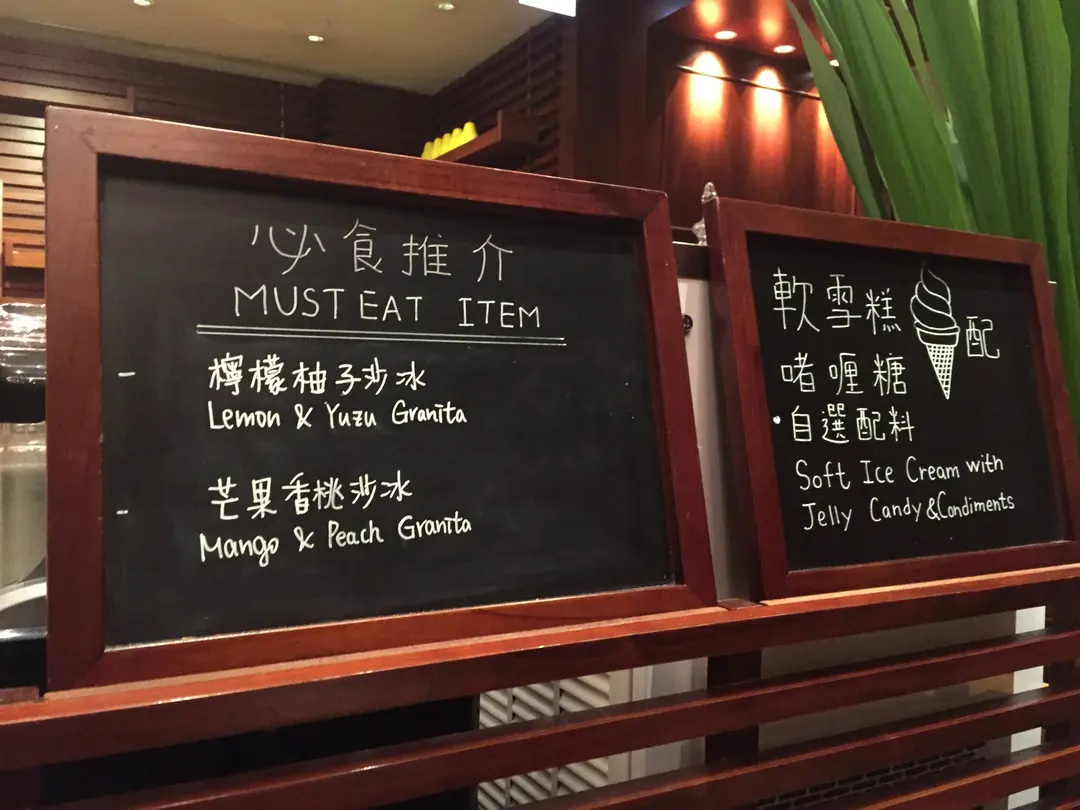 必食推介
MUST EAT ITEM
檸檬柚子沙冰
Lemon & Yuzu Granita
芒果香桃沙冰
Mango & Peach Granita
軟雪糕配
啫喱糖
自選配料
Soft Ice Cream with
Jelly Candy & Condiments